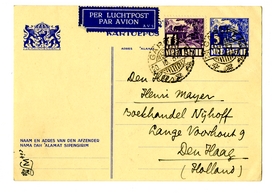 PER LUCHTPOST
PAR AVION
KARTUPOS
ADRES ALAMAT
Den Heer
Henri Mayer
Boekhandel Nijhoff
Lange Voorhout 9
Den Haag
(Holland)
NAAM EN ADRES VAN DEN AFZENDER
NAMA DAN ALAMAT SIPENGIRIM